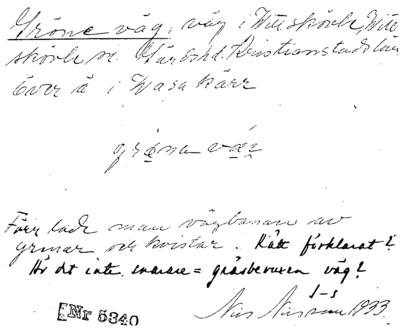 Gröne väg, väg i Vittskövle, Vitt-
skövle sn. Gärds hd. Kristianstads län
över å i Vasa kärr
gröna väg
Förr lade man vägbanan av
grenar och kvistar. Rätt förklarat?
Är det inte snarare = gräsbevuxen väg?
J–s
Nils Nilsson 1933.
Nr 5340